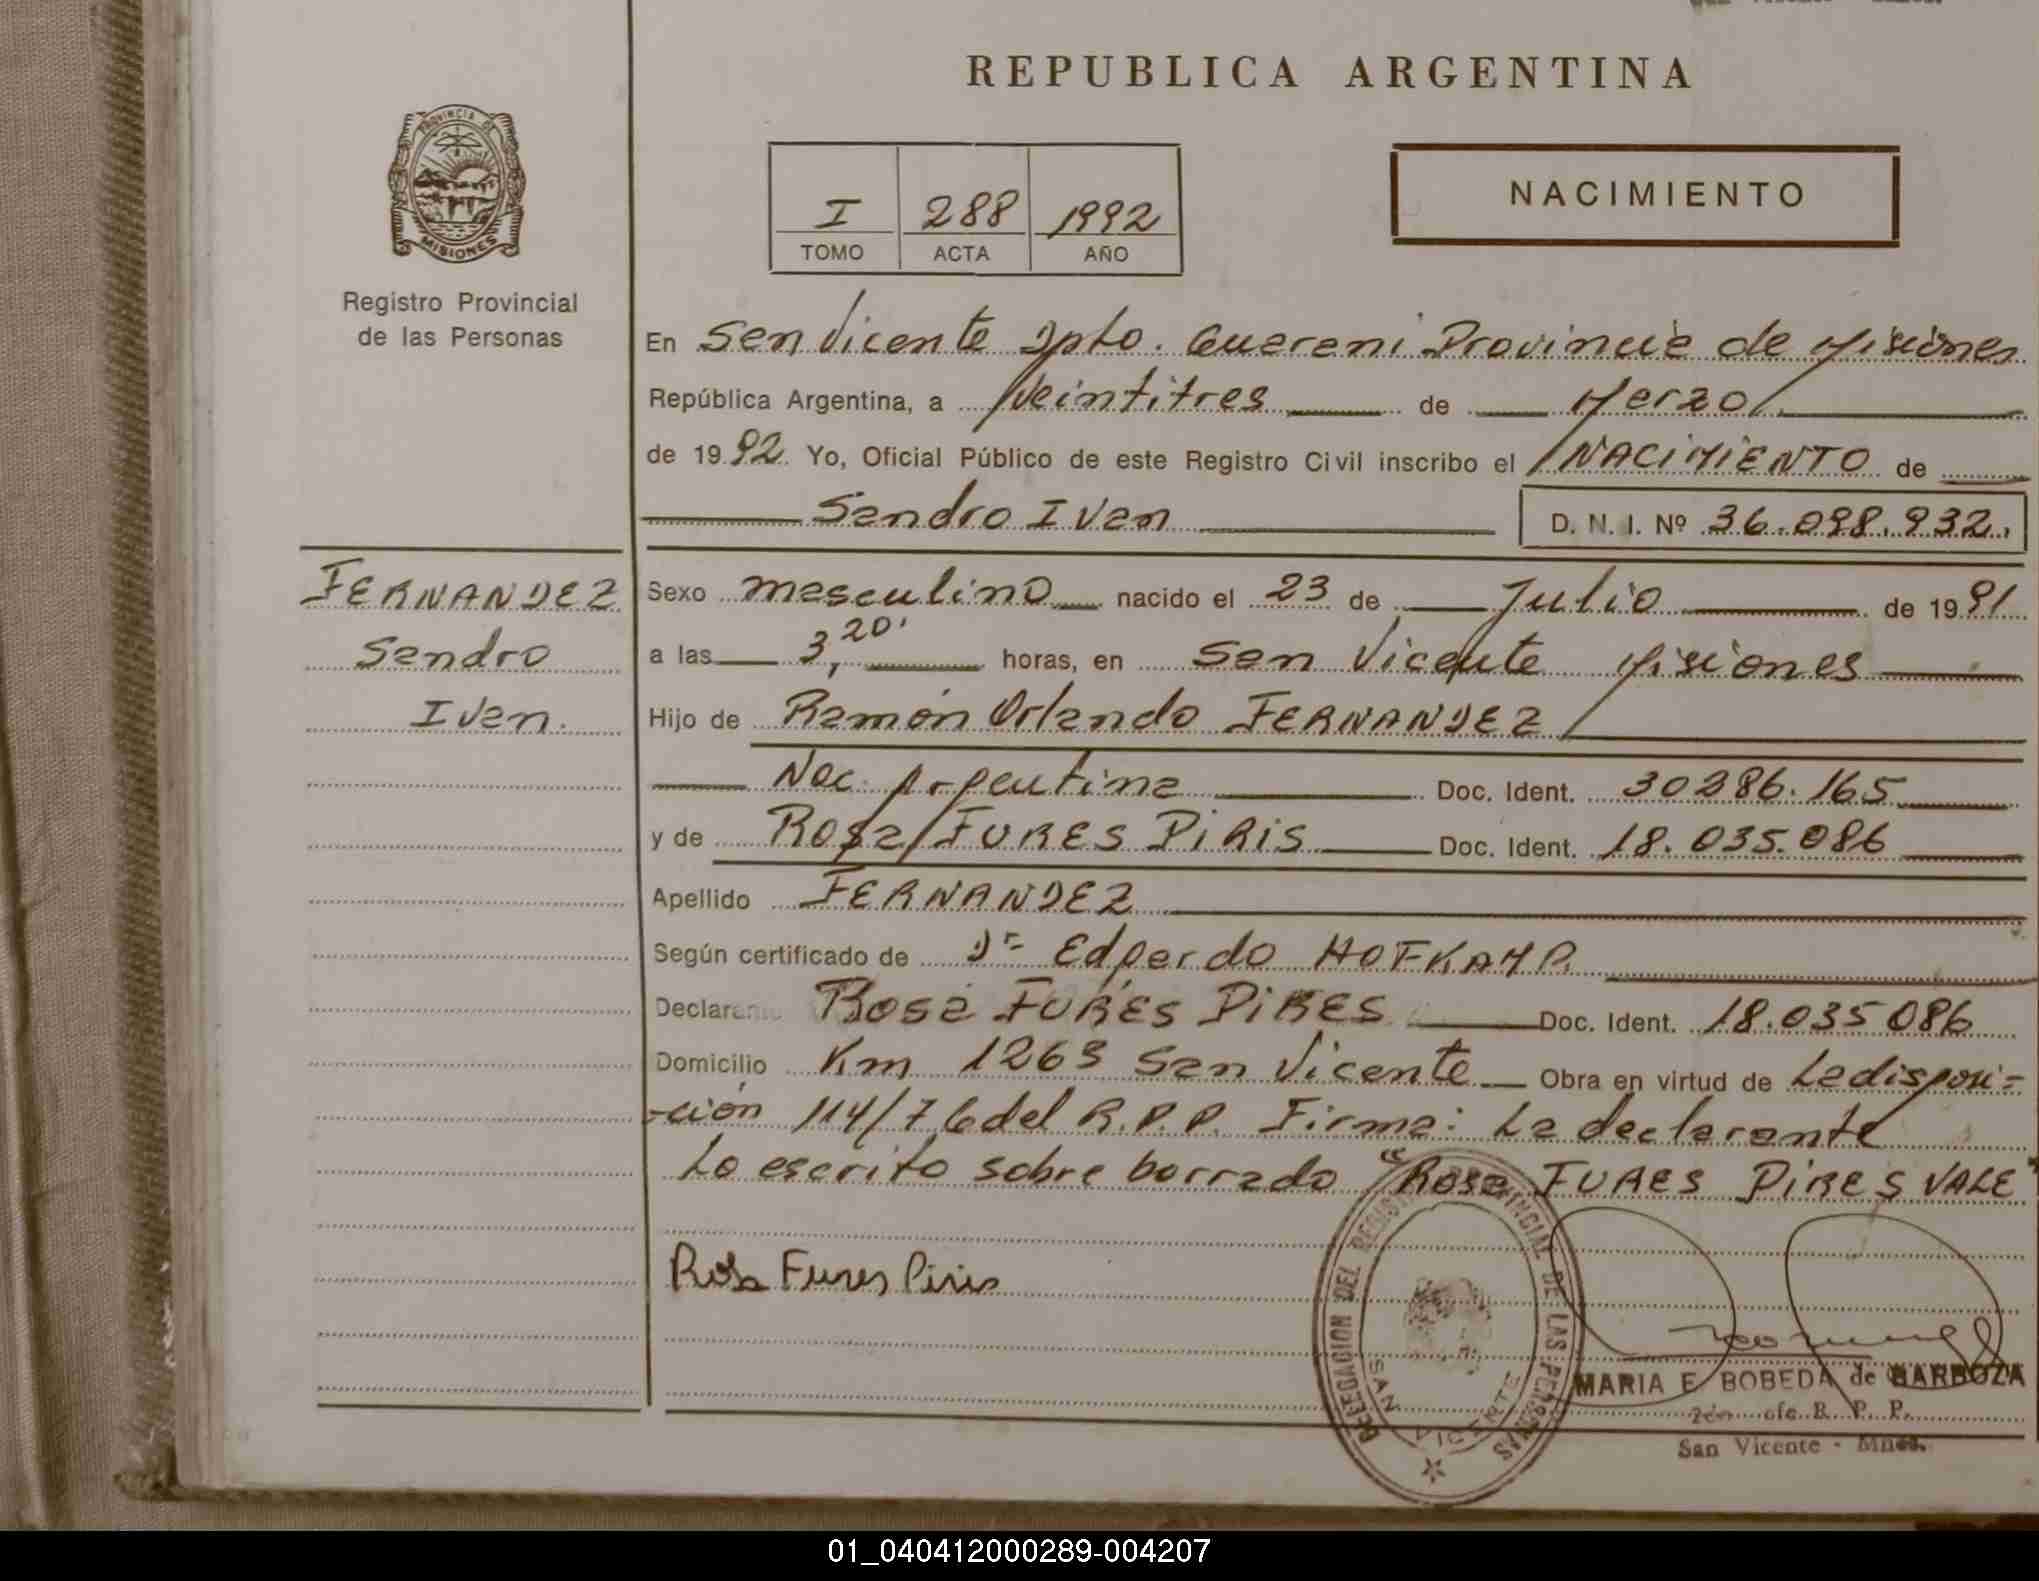 REPUBLICA ARGENTINA
PROVINCIA DE
MISIONES
Registro Provincial
de las Personas
I 288 1992
TOMO ACTA AÑO
NACIMIENTO
En San Vicente Dpto. Guarani Provincia de Misiones
República Argentina, a veintitres de Marzo
de 1992. Yo, Oficial Público de este Registro Civil inscribo el NACIMIENTO de
Sandro Ivan D. N. I. Nº 36.098.932.
FERNANDEZ
Sandro
Ivan.
Sexo masculino nacido el 23 de Julio de 1991
a las 3,20' horas, en San Vicente Misiones
Hijo de Ramón Orlando FERNANDEZ
Nac. Argentina Doc. Ident. 30286.165
y de Rosa FURES PIRIS Doc. Ident. 18.035.086
Apellido FERNANDEZ
Según certificado de Dr Edgardo HOFKAMP.
Declarante Rosa FURES PIRES Doc. Ident. 18.035086
Domicilio Km 1263 San Vicente Obra en virtud de La disposi=
-ción 114/76 del R.P.P. Firma: La declarante
Lo escrito sobre borrado "Rosa FURES PIRES VALE"
Rosa Fures Piris
DELEGACION DEL REGISTRO PROVINCIAL DE LAS PERSONAS
SAN VICENTE
MARIA E. BOBEDA de BARBOZA
R. P. P.
San Vicente - Mnes.
01_040412000289-004207